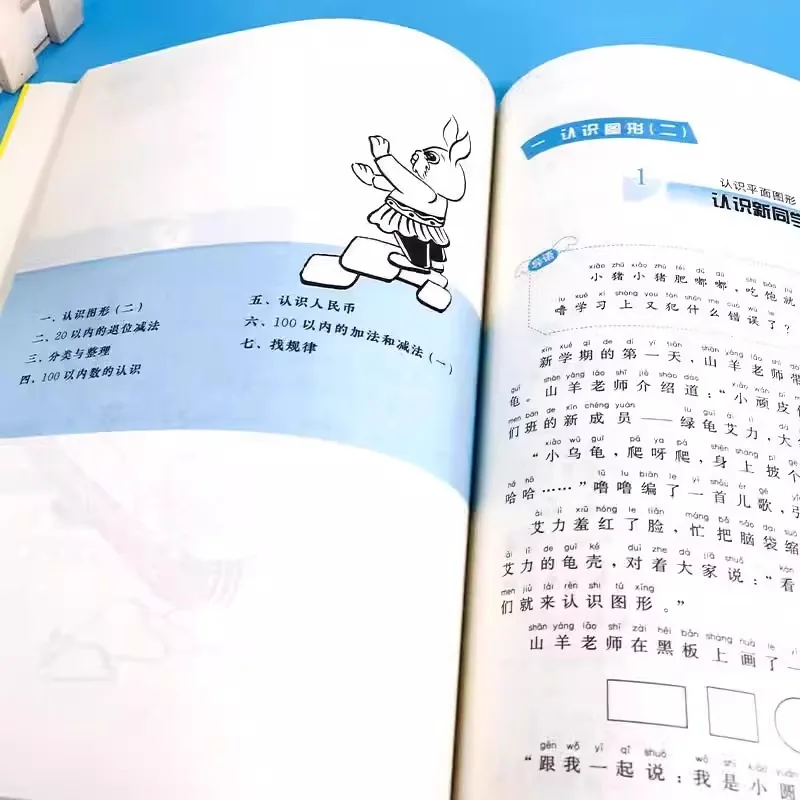 一、认识图形（二）
二、20以内的退位减法
三、分类与整理
四、100以内数的认识
五、认识人民币
六、100以内的加法和减法（一）
七、找规律
一 认识图形（二）
1
认识平面图形
认识新同学
导语
xiǎo zhū xiǎo zhū féi dū dū
小猪小猪肥嘟嘟，吃饱就
噜学习上又犯什么错误了？
xīn xué qī de dì yī tiān shān yáng lǎo shī
新学期的第一天，山羊老师带
guī shān yáng lǎo shī jiè shào dào
龟。山羊老师介绍道：“小顽皮
men bān de xīn chéng yuán lǜ guī ài lì
们班的新成员——绿龟艾力，大
xiǎo wū guī pá ya pá shēn shàng pī gè
“小乌龟，爬呀爬，身上披个
hā hā lū lu biān le yì shǒu ér gē
哈哈……”噜噜编了一首儿歌，引
ài lì xiū hóng le liǎn máng bǎ nǎo dai suō
艾力羞红了脸，忙把脑袋缩
ài lì de guī ké duì zhe dà jiā shuō kàn
艾力的龟壳，对着大家说：“看
men jiù lái rèn shi tú xíng
们就来认识图形。”
shān yáng lǎo shī zài hēi bǎn shàng huà le yī
山羊老师在黑板上画了一
gēn wǒ yì qǐ shuō wǒ shì xiǎo yuán
“跟我一起说：我是小圆